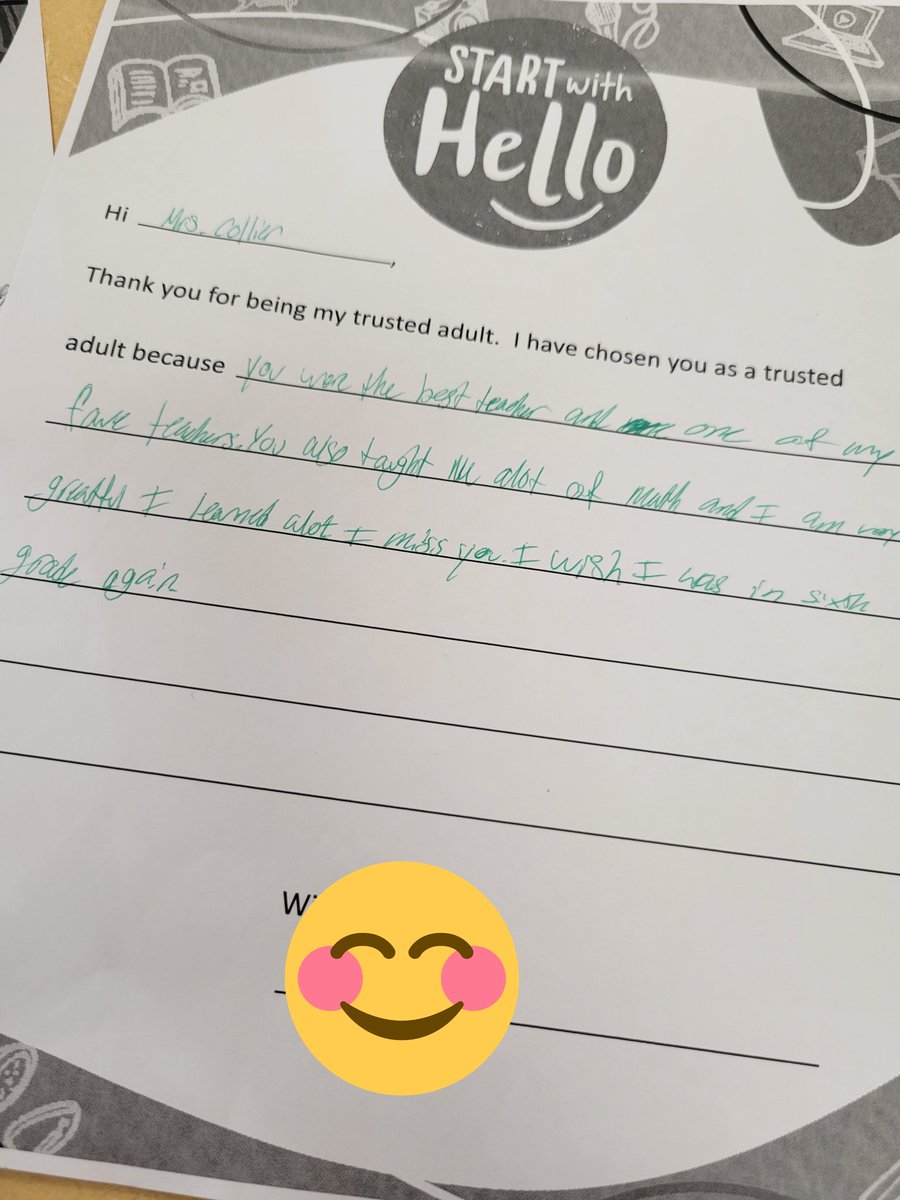 START with
Hello
Hi Mrs. Collier,
Thank you for being my trusted adult. I have chosen you as a trusted
adult because you were the best teacher and one of my
fave teachers. You also taught me alot of math and I am very
greatful I learned alot I miss you. I wish I was in sixth
grade again
Wi